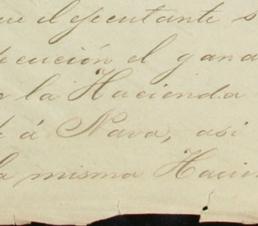 ue el ejecutante s
ecución el gana
e la Hacienda
á Nava, asi
la misma Hacien